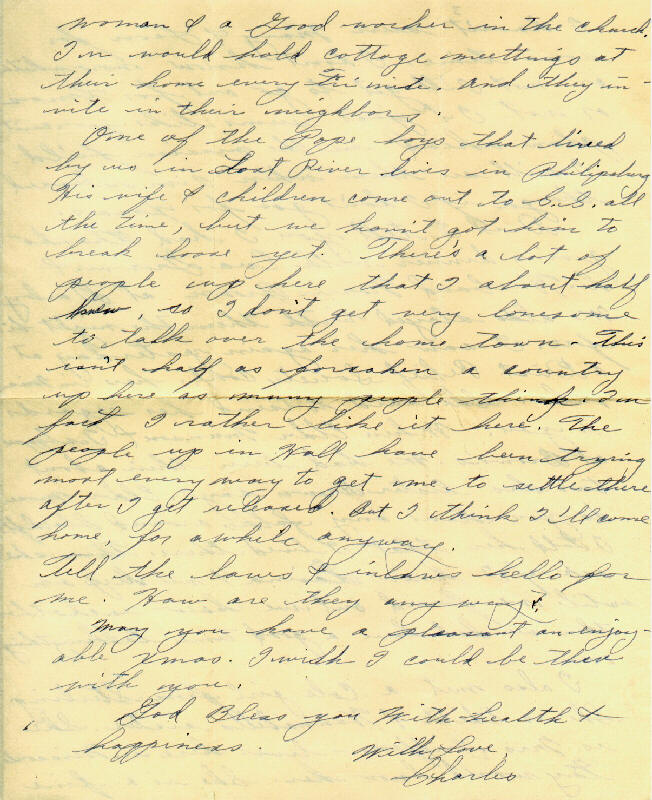 woman & a Good worker in the church.
I'n would hold cottage meettings at
their home every Fri nite. and they in-
vite in their neighbors.
One of the Pope boys that lived
by us in Lost River lives in Philipsburg
His wife & children come out to S.S. all
the time, but we havn't got him to
break loose yet. There's a lot of
people up here that I about half
knew, so I don't get very lonesome
to talk over the home town. This
isn't half as forsaken a country
up here as many people think. In
fact I rather like it here. The
people up in Hall have been trying
most every way to get me to settle there
after I get released. But I think I'll come
home, for a while anyway.
Tell the laws & inlaws hello for
me. How are they any way?
May you have a pleasant an enjoy-
able Xmas. I wish I could be there
with you.
God Bless you With health &
happiness.
With Love,
Charles